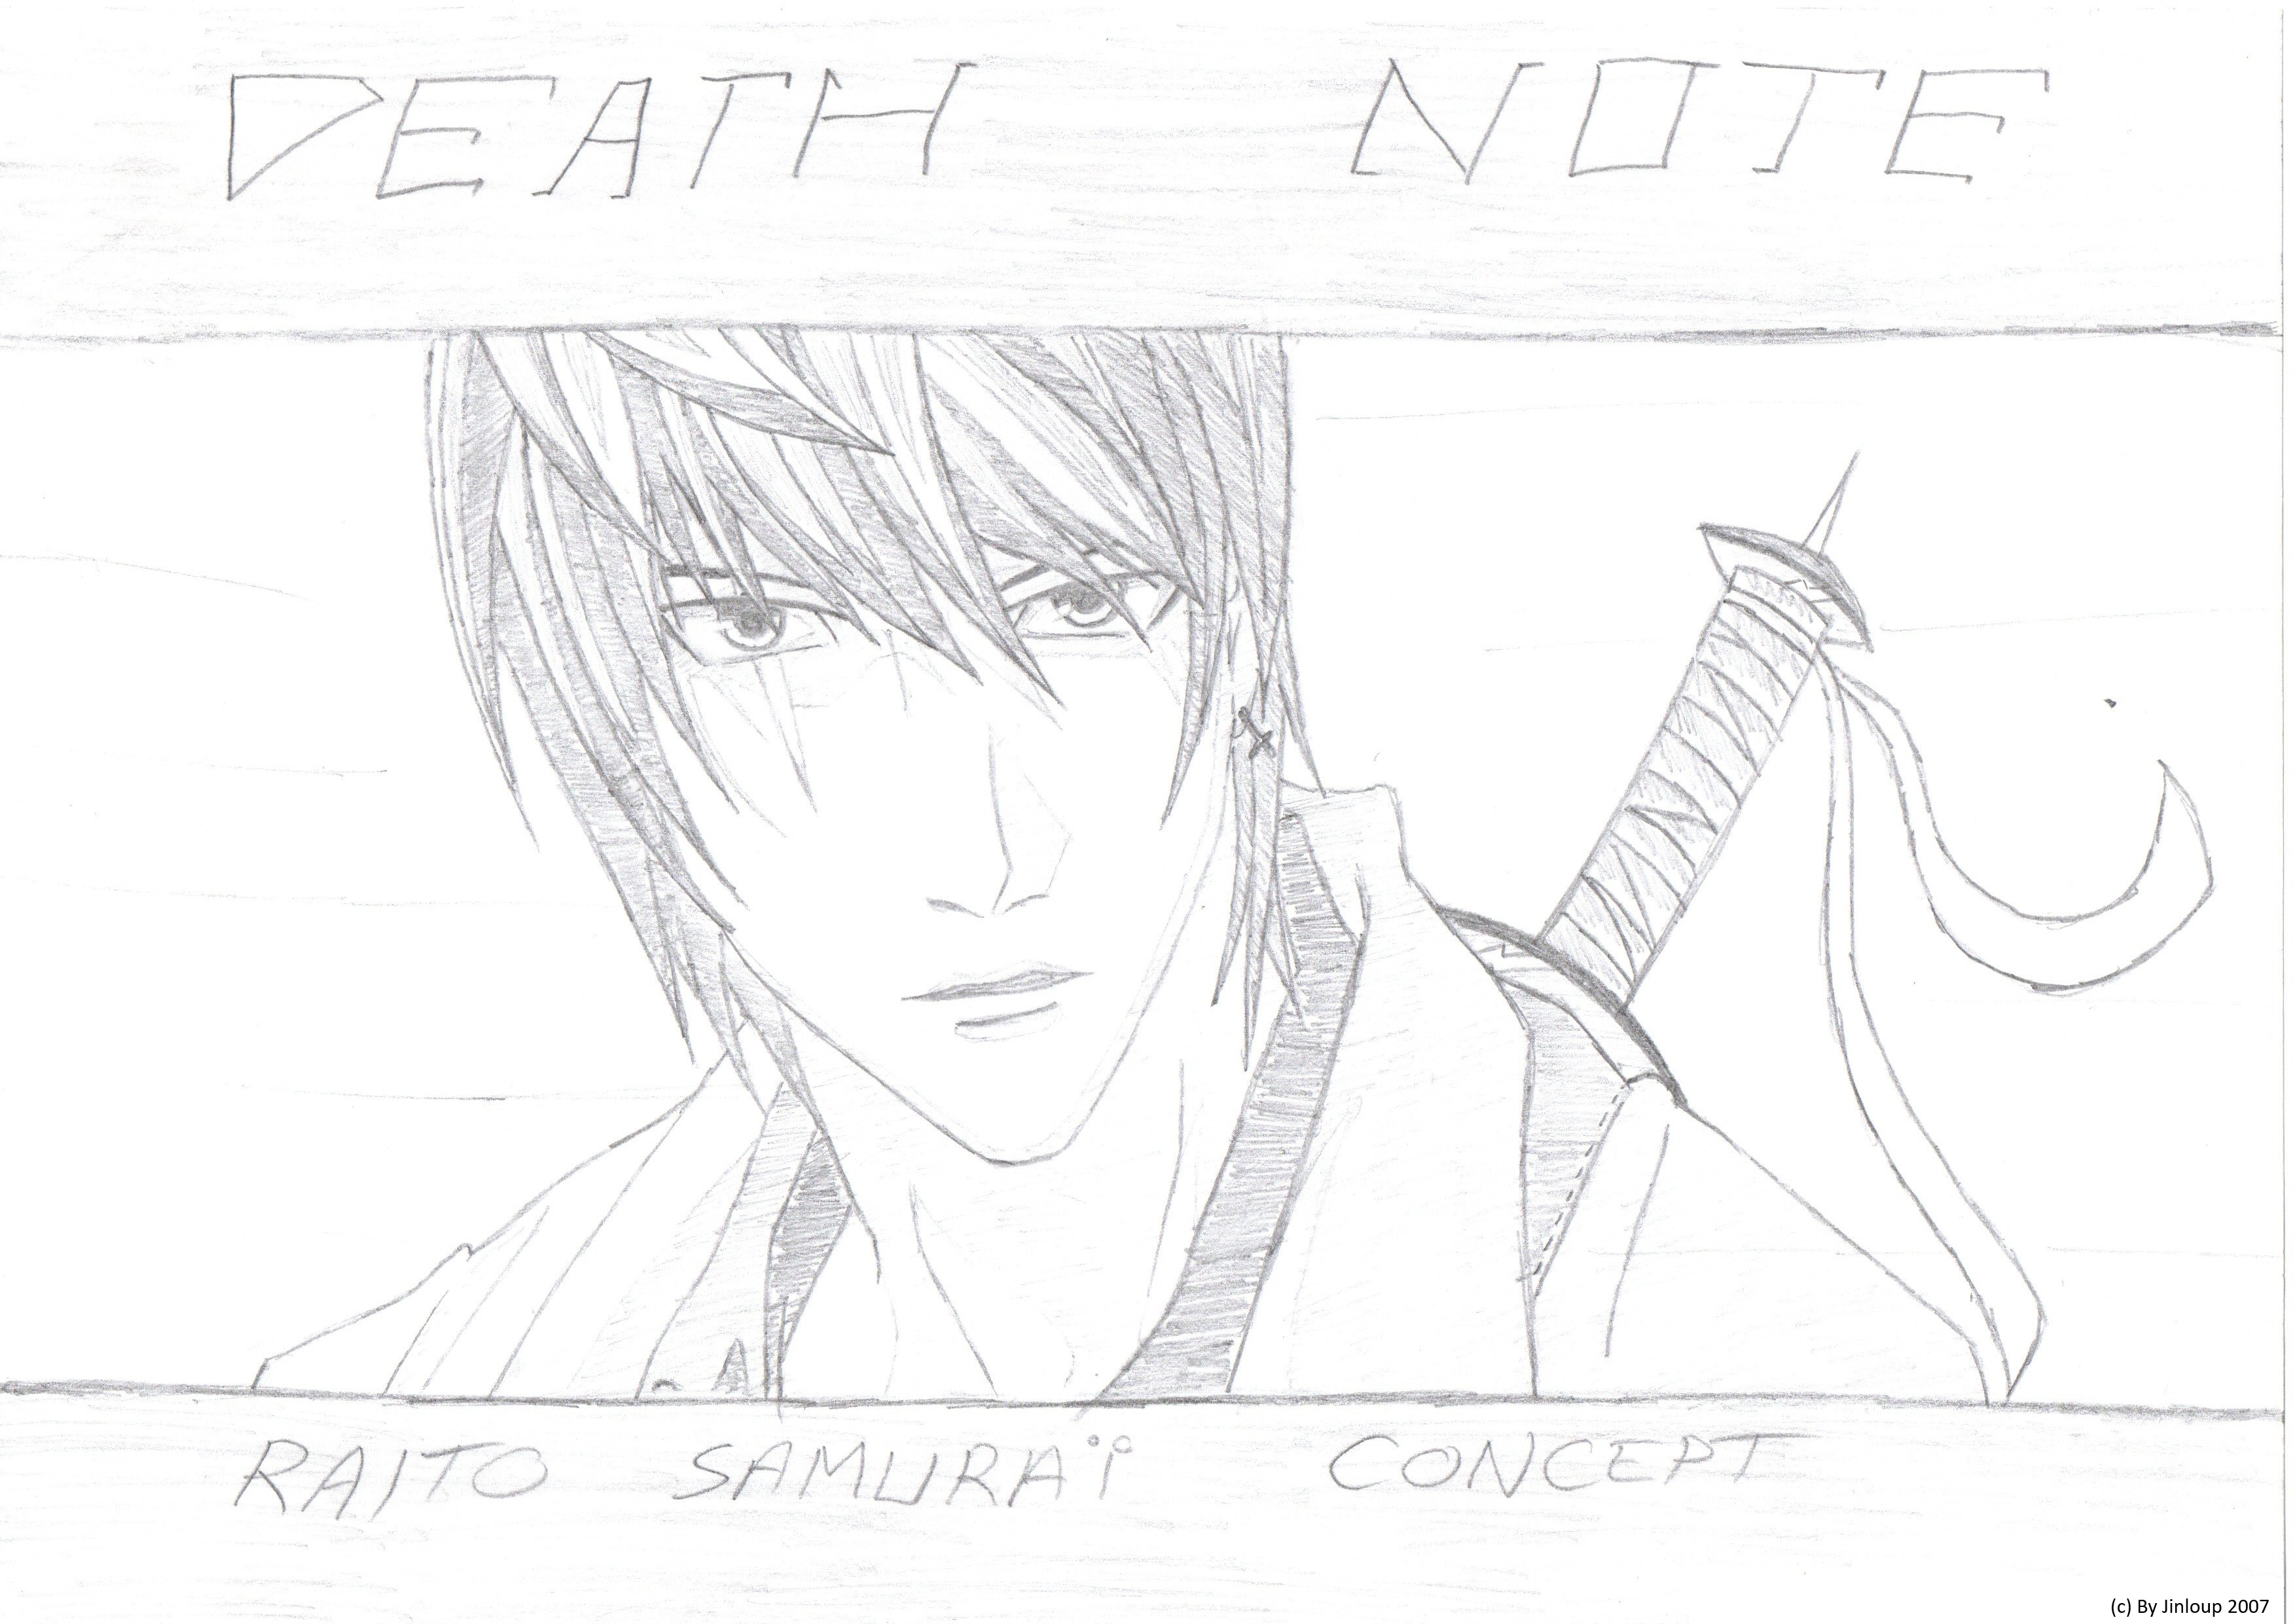 DEATH NOTE
RAITO SAMURAï CONCEPT
(c) By Jinloup 2007